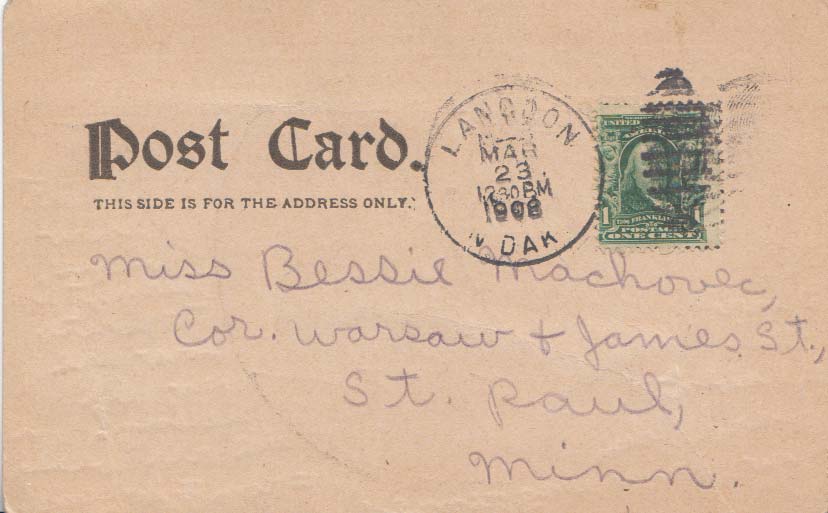 Post Card.
THIS SIDE IS FOR THE ADDRESS ONLY.
LANGDON
MAR
23
1230PM
1908
N. DAK.
UNITED
FRANKLIN
1 POSTAGE 1
ONE CENT
Miss Bessie Machovec,
Cor. Warsaw + James St.,
St. Paul,
Minn.